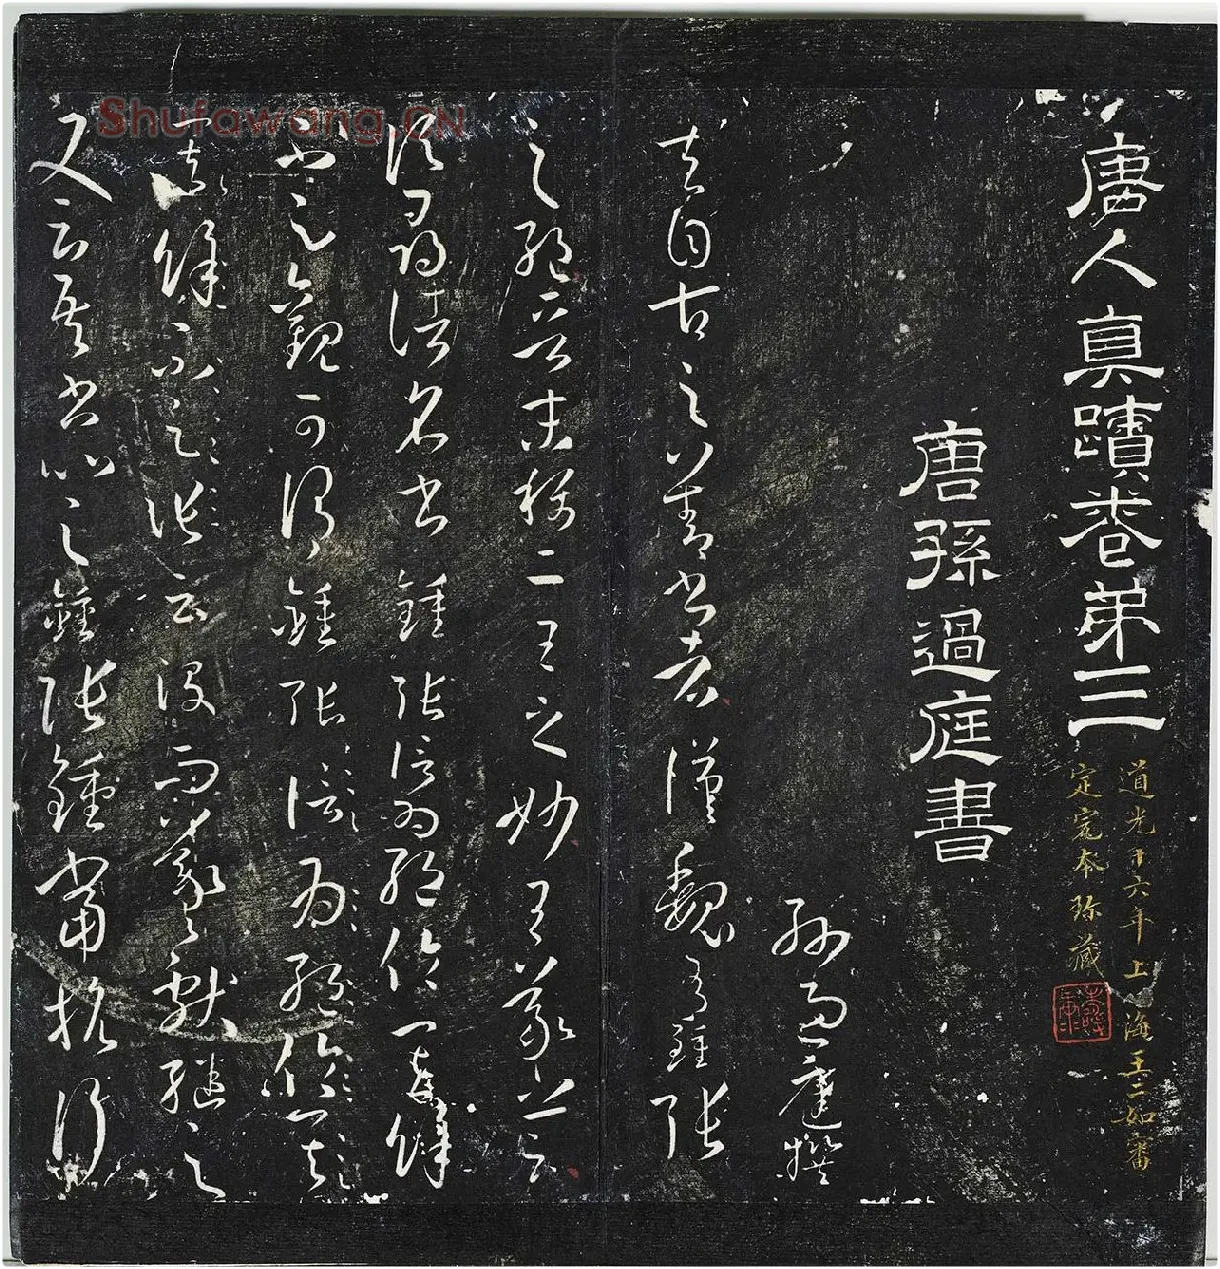 唐人真蹟卷弟三
道光十六年上海王二如審
定完本珍藏
唐孫過庭書
孫過庭撰
夫自古之善書者漢魏有鍾張
之絕晉末稱二王之妙王羲之云
頃尋諸名書鍾張信為絕倫其餘
不足觀可謂鍾張信為絕倫其
餘不足云沒而羲獻繼之
又云吾書比之鍾張鍾當抗行
Shufawang.CN